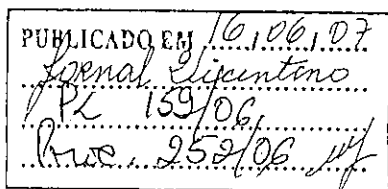 PUBLICADO EM 16,06,07
Jornal Vicentino
PL 159/06
Proc. 252/06